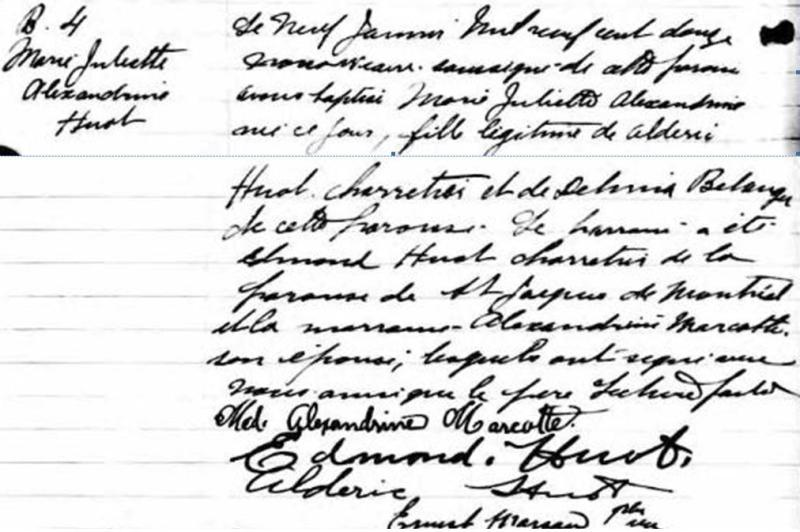 B. 4
Marie Juliette
Alexandrine
Huot
Le Neuf Janvier Mil neuf cent douze
nous vicaire soussigné de cette paroisse
avons baptisé Marie Juliette Alexandrine
née ce jour, fille légitime de Alderic
Huot charretier et de Delvina Belanger
de cette paroisse. Le parrain a été
Edmond Huot charretier de la
paroisse de St Jacques de Montréal
et la marraine Alexandrine Marcotte
son épouse; lesquels ont signé avec
nous ainsi que le père Lecture faite
Md. Alexandrine Marcotte.
Edmond. Huot.
Alderic Huot
Ernest Marsan ptre vic